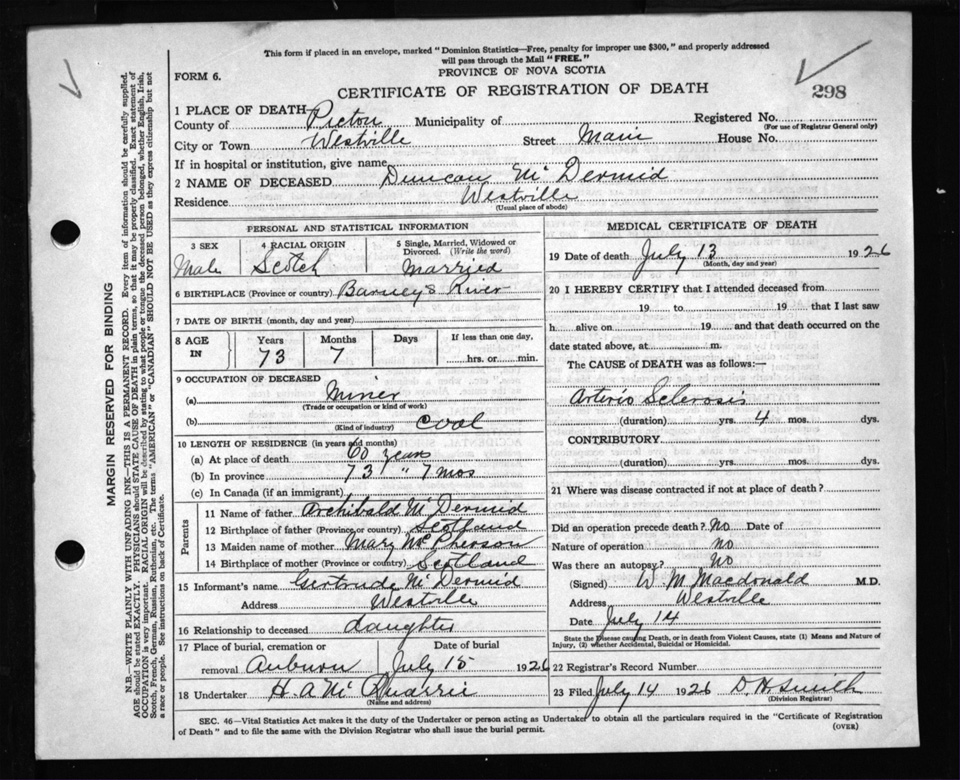 This form if placed in an envelope, marked "Dominion Statistics—Free, penalty for improper use $300," and properly addressed
will pass through the Mail "FREE."
FORM 6.
PROVINCE OF NOVA SCOTIA
CERTIFICATE OF REGISTRATION OF DEATH
298
1 PLACE OF DEATH
County of Pictou Municipality of Registered No.
(For use of Registrar General only)
City or Town Westville Street Main House No.
If in hospital or institution, give name
2 NAME OF DECEASED Duncan McDermid
Residence Westville
(Usual place of abode)
PERSONAL AND STATISTICAL INFORMATION
3 SEX 4 RACIAL ORIGIN 5 Single, Married, Widowed or Divorced. (Write the word)
Male Scotch Married
6 BIRTHPLACE (Province or country) Barney's River
7 DATE OF BIRTH (month, day and year)
8 AGE IN Years Months Days If less than one day,
73 7 hrs. or min.
9 OCCUPATION OF DECEASED
(a) Miner
(Trade or occupation or kind of work)
(b) Coal
(Kind of industry)
10 LENGTH OF RESIDENCE (in years and months)
(a) At place of death 60 years
(b) In province 73 " 7 mos
(c) In Canada (if an immigrant)
Parents
11 Name of father Archibald McDermid
12 Birthplace of father (Province or country) Scotland
13 Maiden name of mother Mary McPherson
14 Birthplace of mother (Province or country) Scotland
15 Informant's name Gertrude McDermid
Address Westville
16 Relationship to deceased daughter
17 Place of burial, cremation or Date of burial
removal Auburn July 15 1926
18 Undertaker H. A McQuarrie
(Name and address)
MEDICAL CERTIFICATE OF DEATH
19 Date of death July 13 1926
(Month, day and year)
20 I HEREBY CERTIFY that I attended deceased from
19 to 19 that I last saw
h alive on 19 and that death occurred on the
date stated above, at m.
The CAUSE of DEATH was as follows:—
Arterio Sclerosis
(duration) yrs. 4 mos. dys.
CONTRIBUTORY
(duration) yrs. mos. dys.
21 Where was disease contracted if not at place of death?
Did an operation precede death? No Date of
Nature of operation no
Was there an autopsy? No
(Signed) W. M. Macdonald M.D.
Address Westville
Date July 14
State the Disease causing Death, or in death from Violent Causes, state (1) Means and Nature of
Injury, (2) whether Accidental, Suicidal or Homicidal.
22 Registrar's Record Number
23 Filed July 14 1926 D. H. Smith
(Division Registrar)
SEC. 46—Vital Statistics Act makes it the duty of the Undertaker or person acting as Undertaker to obtain all the particulars required in the "Certificate of Registration
of Death" and to file the same with the Division Registrar who shall issue the burial permit. (OVER)
MARGIN RESERVED FOR BINDING
N.B.—WRITE PLAINLY WITH UNFADING INK—THIS IS A PERMANENT RECORD. Every item of information should be carefully supplied.
AGE should be stated EXACTLY. PHYSICIANS should STATE CAUSE OF DEATH in plain terms, so that it may be properly classified. Exact statement of
OCCUPATION is very important. RACIAL ORIGIN will be described by stating to what people or tongue the deceased person belonged, whether English, Irish,
Scotch, French, German, Russian, Ruthenian, etc. The terms "AMERICAN" or "CANADIAN" SHOULD NOT BE USED as they express citizenship but not
a race or people. See instructions on back of Certificate.